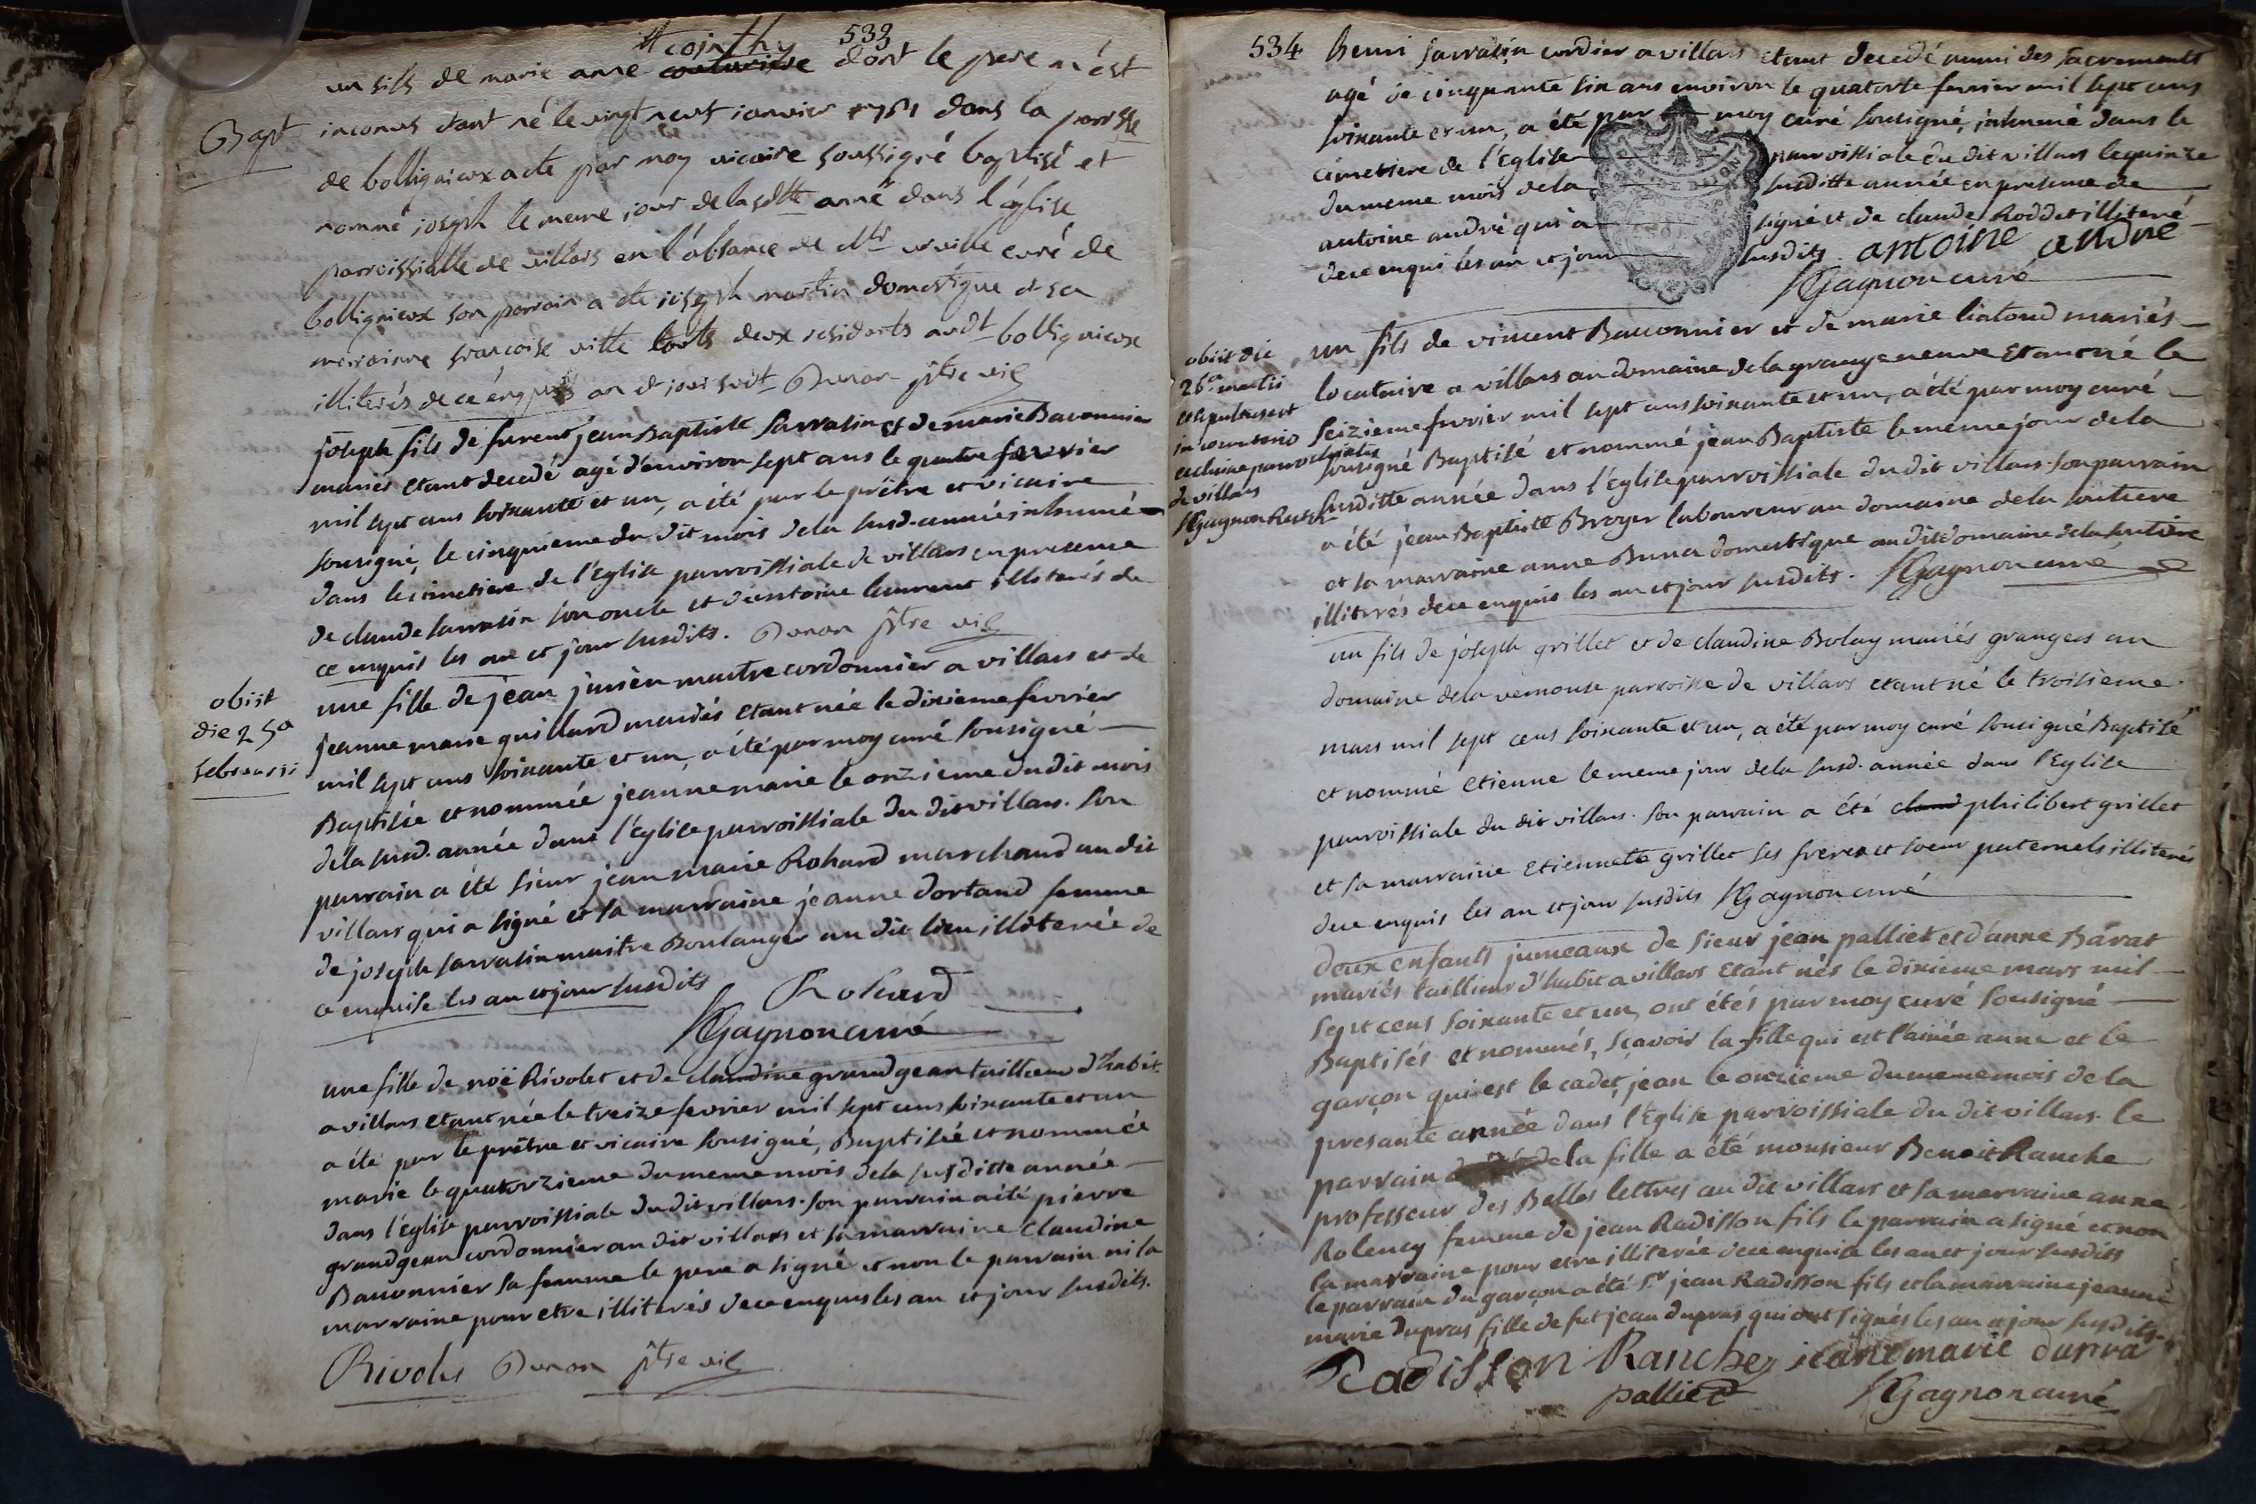 533
cointhy
un fils de marie anne couturiere dont le pere n'est
Bapt
inconus étant né le vingt neuf ianvier 1761 dans la parisse
de bollignieux a été par moy vicaire soussigné baptisé et
nommé ioseph le meme iour de la sdtte anné dans l'église
parroissialle de villars en l'absance de Mr curé de
bolligneux son parrain a été ioseph martin domestique et sa
marrainne francoise vitte touts deux residents audt bollignieux
illiterés de ce enquis an et jour sudt Dunon ptre vic
joseph fils de furent jean Baptiste Sarrasin et de marie Bavonnier
mariés etant decedé agé d'environ sept ans le quatre fevrier
mil sept cens soixante et un, a été par le prêtre et vicaire
sousigné, le cinquieme du dit mois de la susd. année inhumé
dans le cimetiere de l'Eglise parroissiale de villars en presence
de claude sarrasin son oncle et d'antoine laurent illiterés de
ce enquis les an et jour susdits. Dunon ptre vic
obiit
die 25a
februarii
une fille de jean jusien maitre cordonnier a villars et de
jeanne marie guillard mariés etant née le dixieme fevrier
mil sept cens soixante et un, a été par moy curé sousigné
Baptisée et nommée jeanne marie le onzieme du dit mois
de la susd. année dans l'Eglise parroissiale du dit villars. son
parrain a été sieur jean marie Rohard marchand au dit
villars qui a signé et sa marraine jeanne dortand femme
de joseph sarrasin maitre Boulanger au dit lieu illiterée de
ce enquise les an et jour susdits Rohard
Gagnon curé
une fille de noë Rivolet et de claudine grandgean tailleur d'habit
a villars etant née le treize fevrier mil sept cens soixante et un
a été par le prêtre et vicaire sousigné, Baptisée et nommée
marie le quatorzieme du meme mois de la susditte année
dans l'église parroissiale du dit villars. son parrain a été pierre
grandgean cordonnier au dit villars et sa marraine Claudine
Bavonnier sa femme le pere a signé et non le parrain ni la
marraine pour etre illiterés de ce enquis les an et jour susdits.
Rivolet Dunon ptre vic
534
henri sarrasin cordier a villars etant decedé muni des sacremens
agé de cinquante six ans environ le quatorze fevrier mil sept cens
soixante et un, a été par moy curé sousigné, inhumé dans le
cimetiere de l'Eglise parroissiale du dit villars le quinze
du meme mois de la susditte année en presence de
antoine andré qui a signé et de claude Roddet illiteré
de ce enqui les an et jour susdits. antoine andre
Gagnon curé
obiit die
26a martii
et sepultus est
in cimeterio
ecclesiae parrochialis
de villars
Gagnon Rector
un fils de vincent Bavonnier et de marie liatoud mariés
locataire a villars au domaine de la grange neuve etant né le
seizieme fevrier mil sept cens soixante et un, a été par moy curé
sousigné Baptisé et nommé jean Baptiste le meme jour de la
susditte année dans l'Eglise parroissiale du dit villars. son parrain
a été jean Baptiste Broyer laboureur au domaine de la sautiere
et sa marraine anne Buna domestique au dit domaine de la sautiere
illiterés de ce enquis les an et jour susdits. Gagnon curé
un fils de joseph grillet et de claudine Bolay mariés grangers au
domaine de la vernouse parroisse de villars etant né le troisieme
mars mil sept cens soixante et un, a été par moy curé sousigné Baptisé
et nommé Etienne le meme jour de la susd. année dans l'Eglise
parroissiale du dit villars. son parrain a été claud philibert grillet
et sa marraine Etiennette grillet ses frere et soeur paternels illiterés
de ce enquis les an et jour susdits Gagnon curé
deux enfants jumeaux de sieur jean palliet et d'anne Barat
mariés tailleur d'habit a villars etant nés le dixieme mars mil
sept cens soixante et un, ont étés par moy curé sousigné
Baptisés et nommés, sçavoir la fille qui est l'ainée anne et le
garçon qui est le cadet, jean le onzieme du meme mois de la
presante année dans l'Eglise parroissiale du dit villars. le
parrain de la fille a été monsieur Benoit Ranche
professeur des Belles lettres au dit villars et sa marraine anne
Rolency femme de jean Radisson fils le parrain a signé et non
la marraine pour etre illiterée de ce enquise les an et jour susdits
le parrain du garçon a été sr jean Radisson fils et la marraine jeanne
marie dupras fille de fut jean dupras qui ont signés les an et jour susdits.
Radisson Ranche jeane marie dupra
palliet Gagnon curé